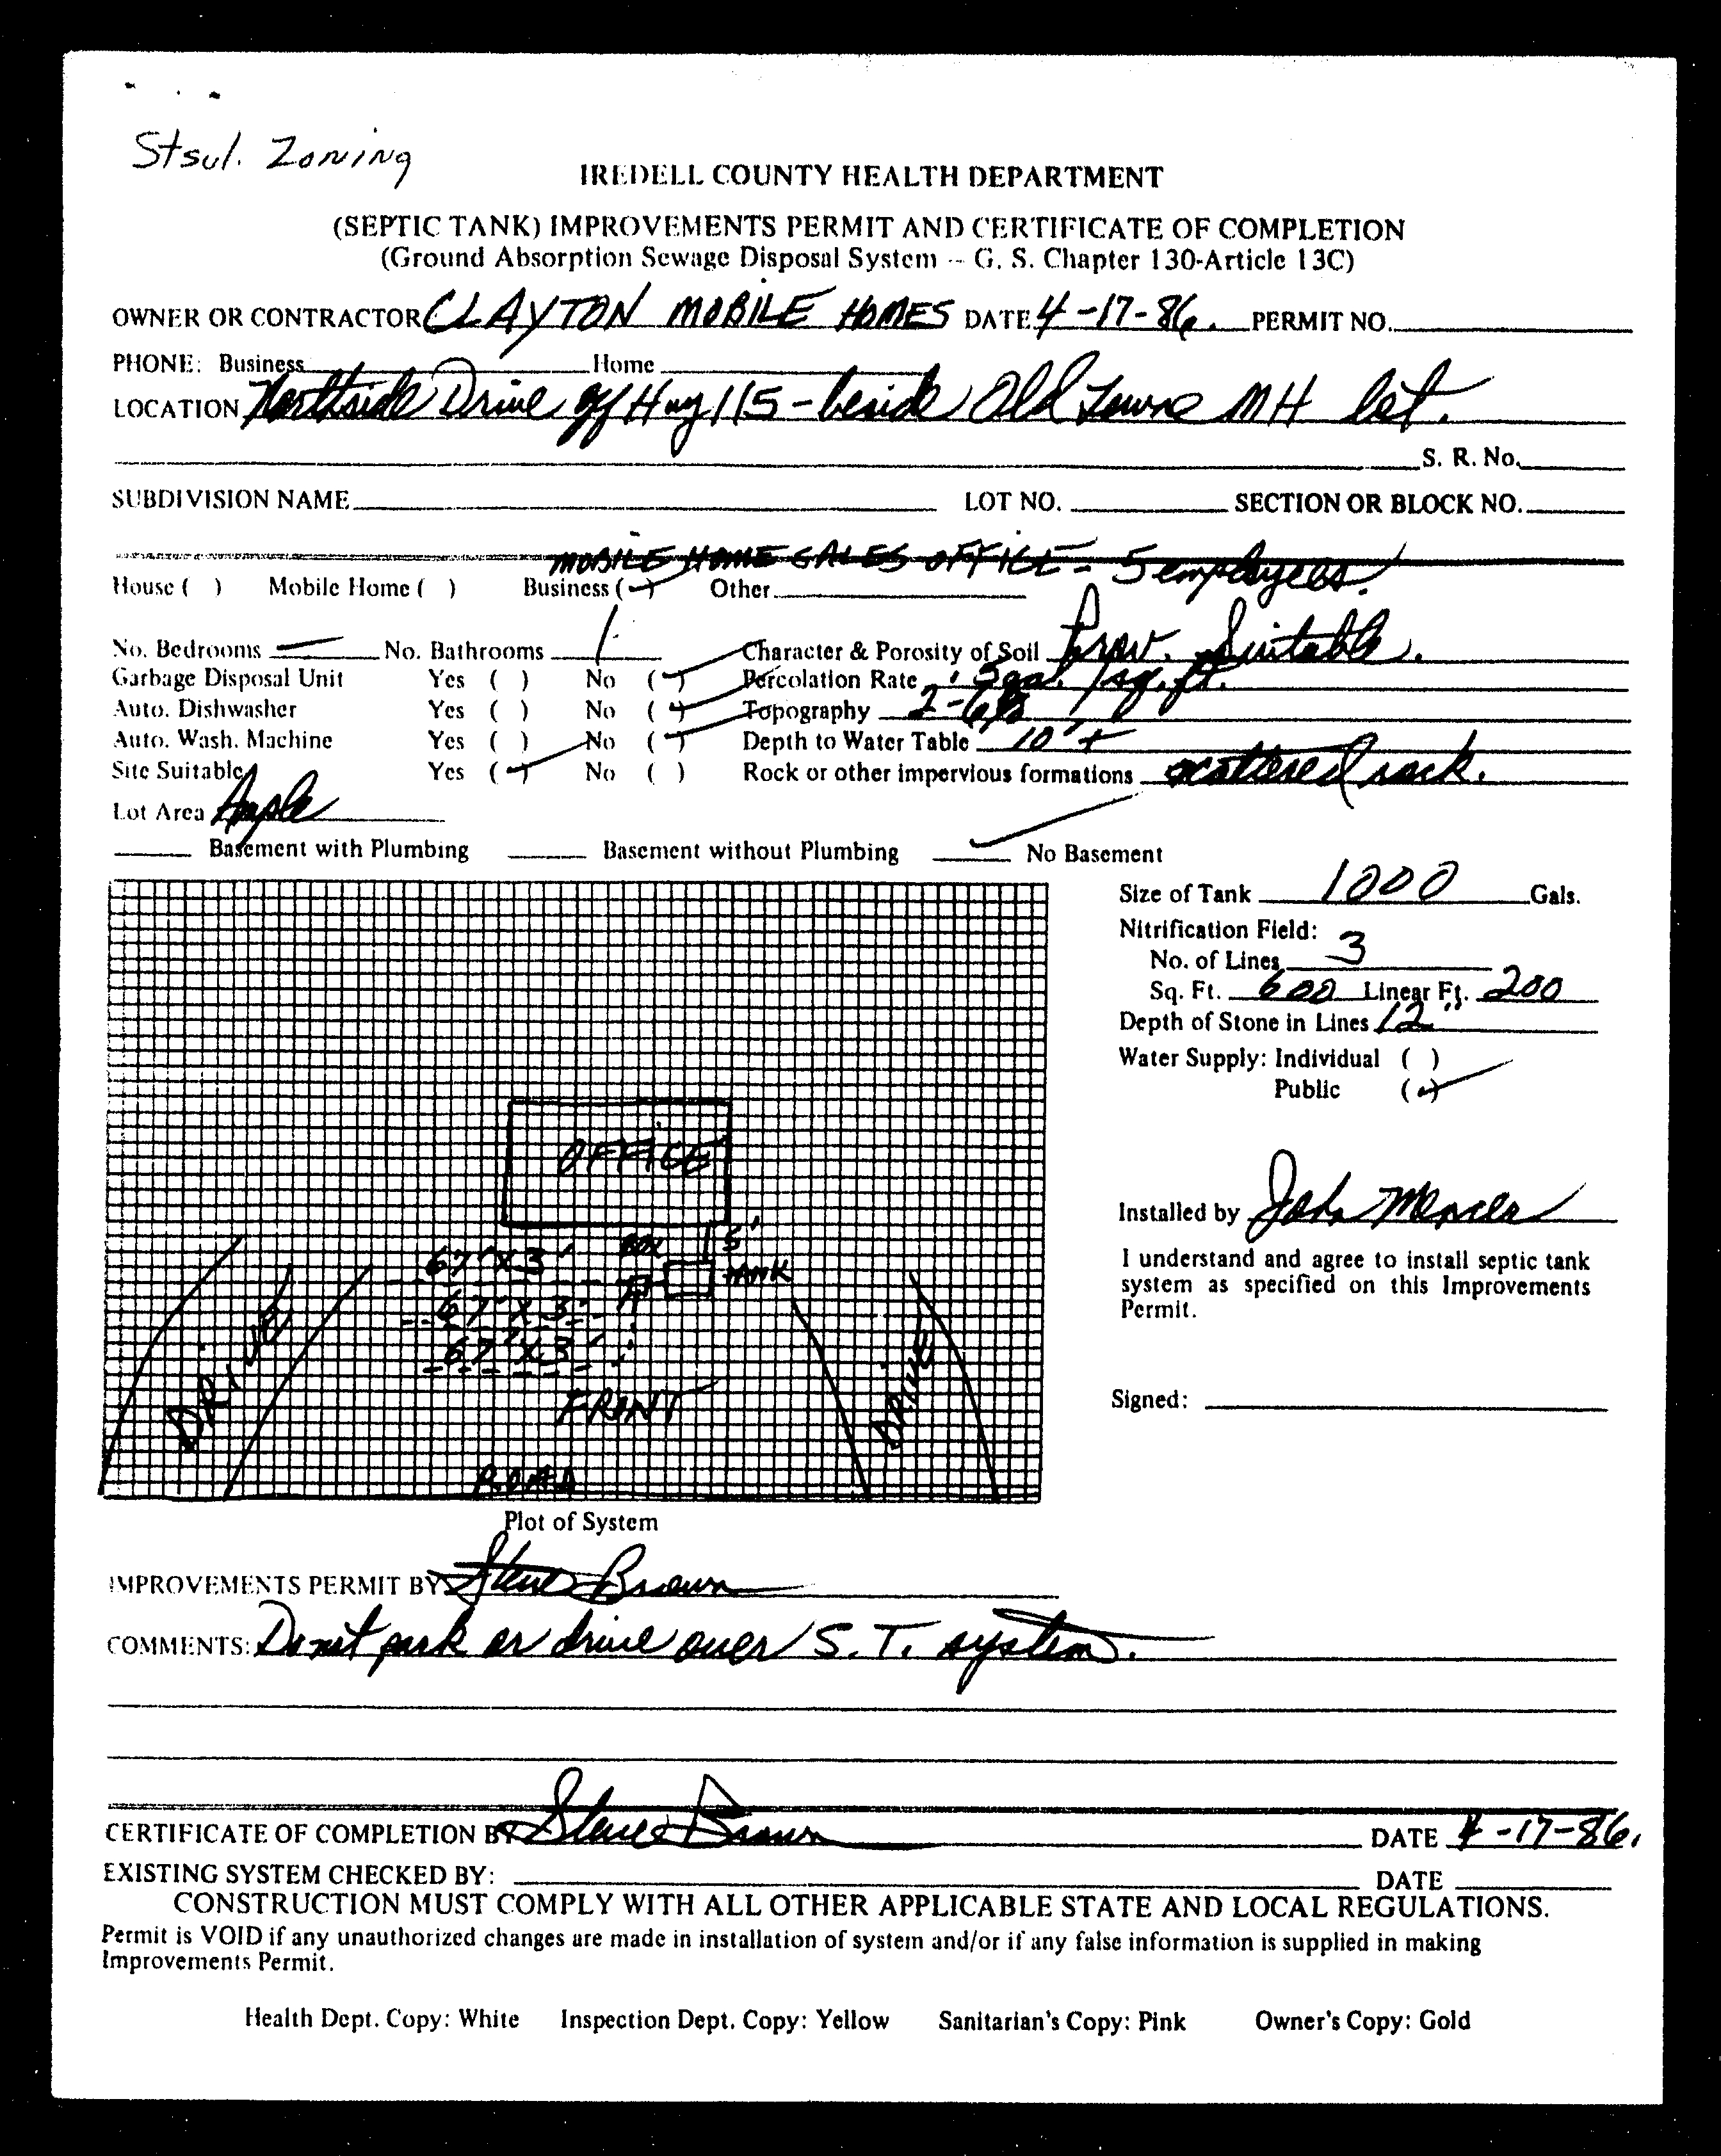 Stsvl. Zoning
IREDELL COUNTY HEALTH DEPARTMENT
(SEPTIC TANK) IMPROVEMENTS PERMIT AND CERTIFICATE OF COMPLETION
(Ground Absorption Sewage Disposal System -- G. S. Chapter 130-Article 13C)
OWNER OR CONTRACTOR CLAYTON MOBILE HOMES DATE 4-17-86. PERMIT NO.
PHONE: Business Home
LOCATION Northside Drive off Hwy 115 - beside Old Towne MH lot.
S. R. No.
SUBDIVISION NAME LOT NO. SECTION OR BLOCK NO.
MOBILE HOME SALES OFFICE - 5 employees.
House ( ) Mobile Home ( ) Business (✓) Other
No. Bedrooms — No. Bathrooms 1 Character & Porosity of Soil Prov. Suitable.
Garbage Disposal Unit Yes ( ) No (✓) Percolation Rate .5 gal. /sq. ft.
Auto. Dishwasher Yes ( ) No (✓) Topography 2-6%
Auto. Wash. Machine Yes ( ) No (✓) Depth to Water Table 10'+
Site Suitable Yes (✓) No ( ) Rock or other impervious formations scattered rock.
Lot Area Ample
Basement with Plumbing Basement without Plumbing ✓ No Basement
Size of Tank 1000 Gals.
Nitrification Field:
No. of Lines 3
Sq. Ft. 600 Linear Ft. 200
Depth of Stone in Lines 12"
Water Supply: Individual ( )
Public (✓)
OFFICE
5'
67' X 3' BOX TANK
67' X 3'
67' X 3'
DRIVE DRIVE
FRONT
ROAD
Installed by John Mercer
I understand and agree to install septic tank
system as specified on this Improvements
Permit.
Signed:
Plot of System
IMPROVEMENTS PERMIT BY Steve Brown
COMMENTS: Do not park or drive over S. T. system.
CERTIFICATE OF COMPLETION BY Steve Brown DATE 4-17-86.
EXISTING SYSTEM CHECKED BY: DATE
CONSTRUCTION MUST COMPLY WITH ALL OTHER APPLICABLE STATE AND LOCAL REGULATIONS.
Permit is VOID if any unauthorized changes are made in installation of system and/or if any false information is supplied in making
Improvements Permit.
Health Dept. Copy: White Inspection Dept. Copy: Yellow Sanitarian's Copy: Pink Owner's Copy: Gold